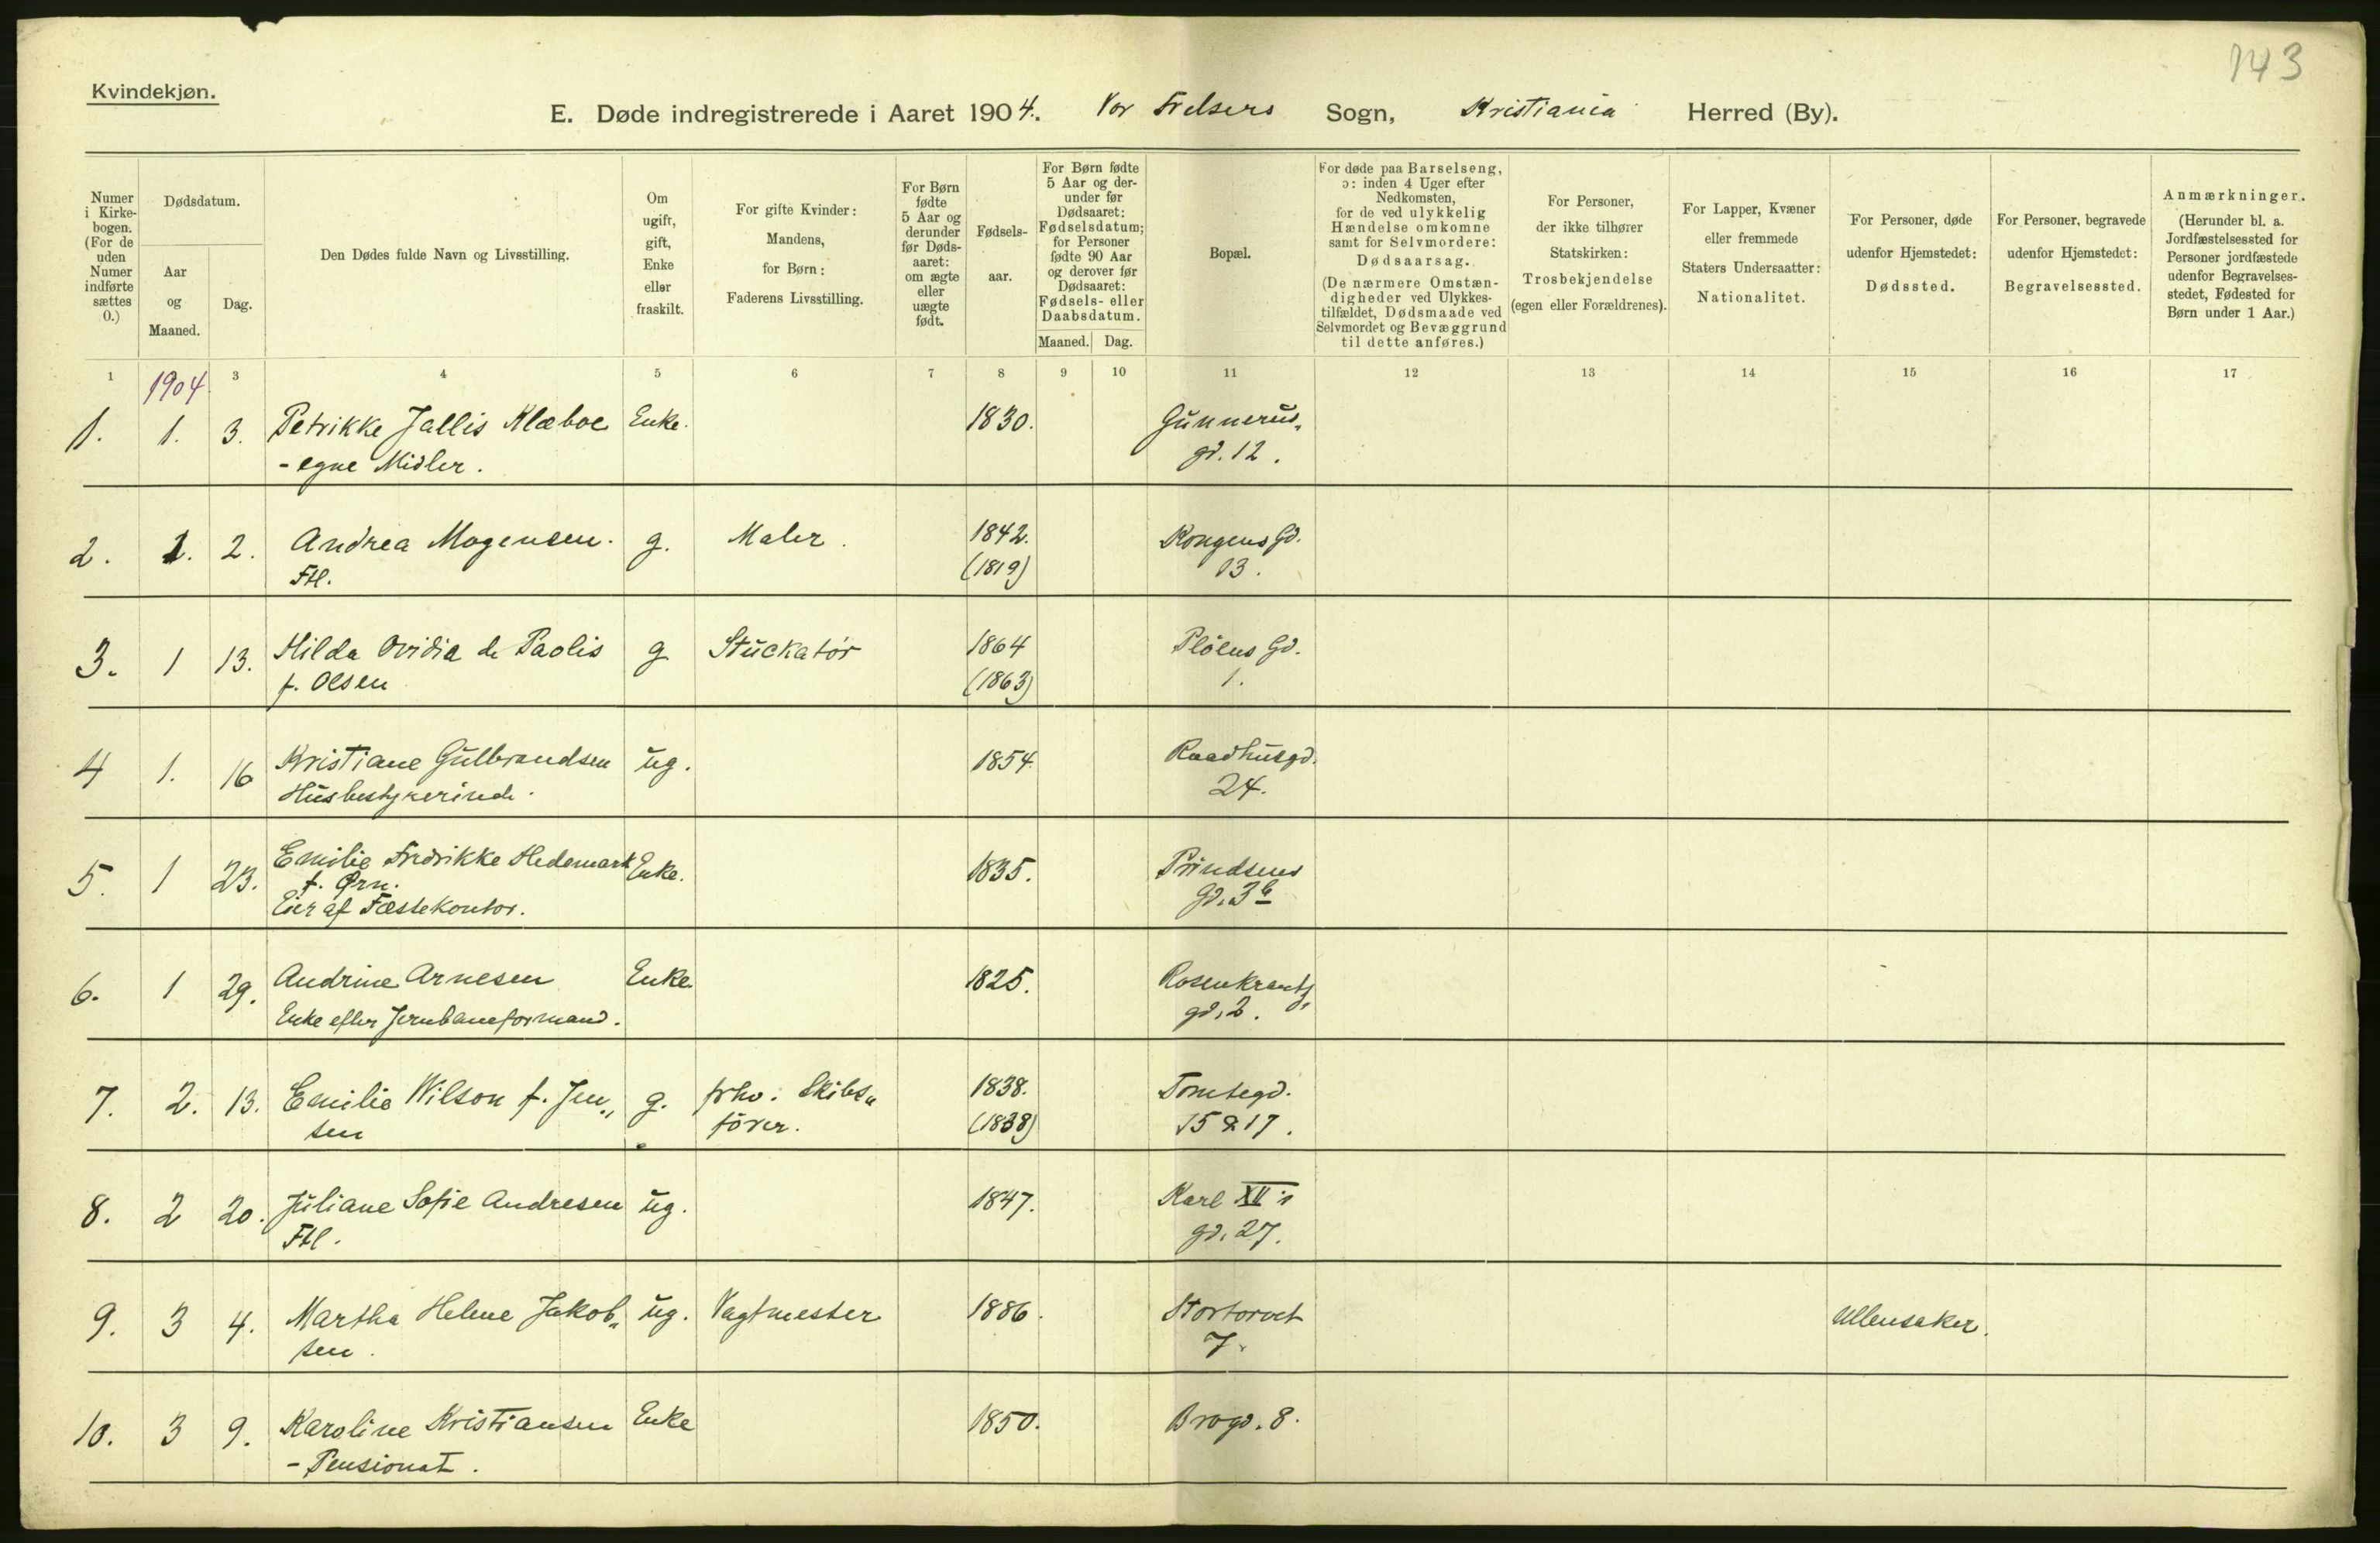 143
Kvindekjøn.
E. Døde indregistrerede i Aaret 1904. Vor Frelsers Sogn, Kristiania Herred (By).
Numer i Kirkebogen. (For de uden Numer indførte sættes 0.)
Dødsdatum.
Aar og Maaned.
Dag.
Den Dødes fulde Navn og Livsstilling.
Om ugift, gift, Enke eller fraskilt.
For gifte Kvinder: Mandens, for Børn: Faderens Livsstilling.
For Børn fødte 5 Aar og derunder før Dødsaaret: om ægte eller uægte født.
Fødselsaar.
For Børn fødte 5 Aar og derunder før Dødsaaret: Fødselsdatum; for Personer fødte 90 Aar og derover før Dødsaaret: Fødsels- eller Daabsdatum.
Maaned. Dag.
Bopæl.
For døde paa Barselseng, ɔ: inden 4 Uger efter Nedkomsten, for de ved ulykkelig Hændelse omkomne samt for Selvmordere: Dødsaarsag. (De nærmere Omstændigheder ved Ulykkestilfældet, Dødsmaade ved Selvmordet og Bevæggrund til dette anføres.)
For Personer, der ikke tilhører Statskirken: Trosbekjendelse (egen eller Forældrenes).
For Lapper, Kvæner eller fremmede Staters Undersaatter: Nationalitet.
For Personer, døde udenfor Hjemstedet: Dødssted.
For Personer, begravede udenfor Hjemstedet: Begravelsessted.
Anmærkninger. (Herunder bl. a. Jordfæstelsessted for Personer jordfæstede udenfor Begravelsesstedet, Fødested for Børn under 1 Aar.)
1 1904 3 4 5 6 7 8 9 10 11 12 13 14 15 16 17
1. 1. 3. Petrikke Jallis Klæboe Enke. 1830. Gunnerus„
- egne Midler. gd. 12.
2. 1. 2. Andrea Mogensen. g. Maler. 1842. Kongens Gd.
Ftl. (1819) 13.
3. 1 13. Hilda Ovidia de Paolis g Stuckatør 1864 Pløens Gd.
f. Olsen (1863) 1.
4 1. 16 Kristiane Gulbrandsen ug. 1854. Raadhusgd.
Husbestyrerinde. 24.
5. 1 23. Emilie Fredrikke Hedemark Enke. 1835. Prindsens
f. Ørn. Gd. 3b
Eier af Fæstekontor.
6. 1 29. Andrine Arnesen Enke 1825. Rosenkrantz„
Enke efter Jernbaneformand. gd. 2.
7. 2. 13. Emilie Wilson f. Jen„ g. frhv. Skibs„ 1838. Tomtegd.
sen fører. (1838) 15 & 17.
8. 2 20. Juliane Sofie Andresen ug. 1847. Karl XII's
Ftl. gd. 27.
9. 3 4. Martha Helene Jakob„ ug. Vagtmester 1886. Stortorvet Ullensaker.
sen. 7.
10. 3 9. Karoline Kristiansen Enke 1850. Brogd. 8.
- Pensionat.